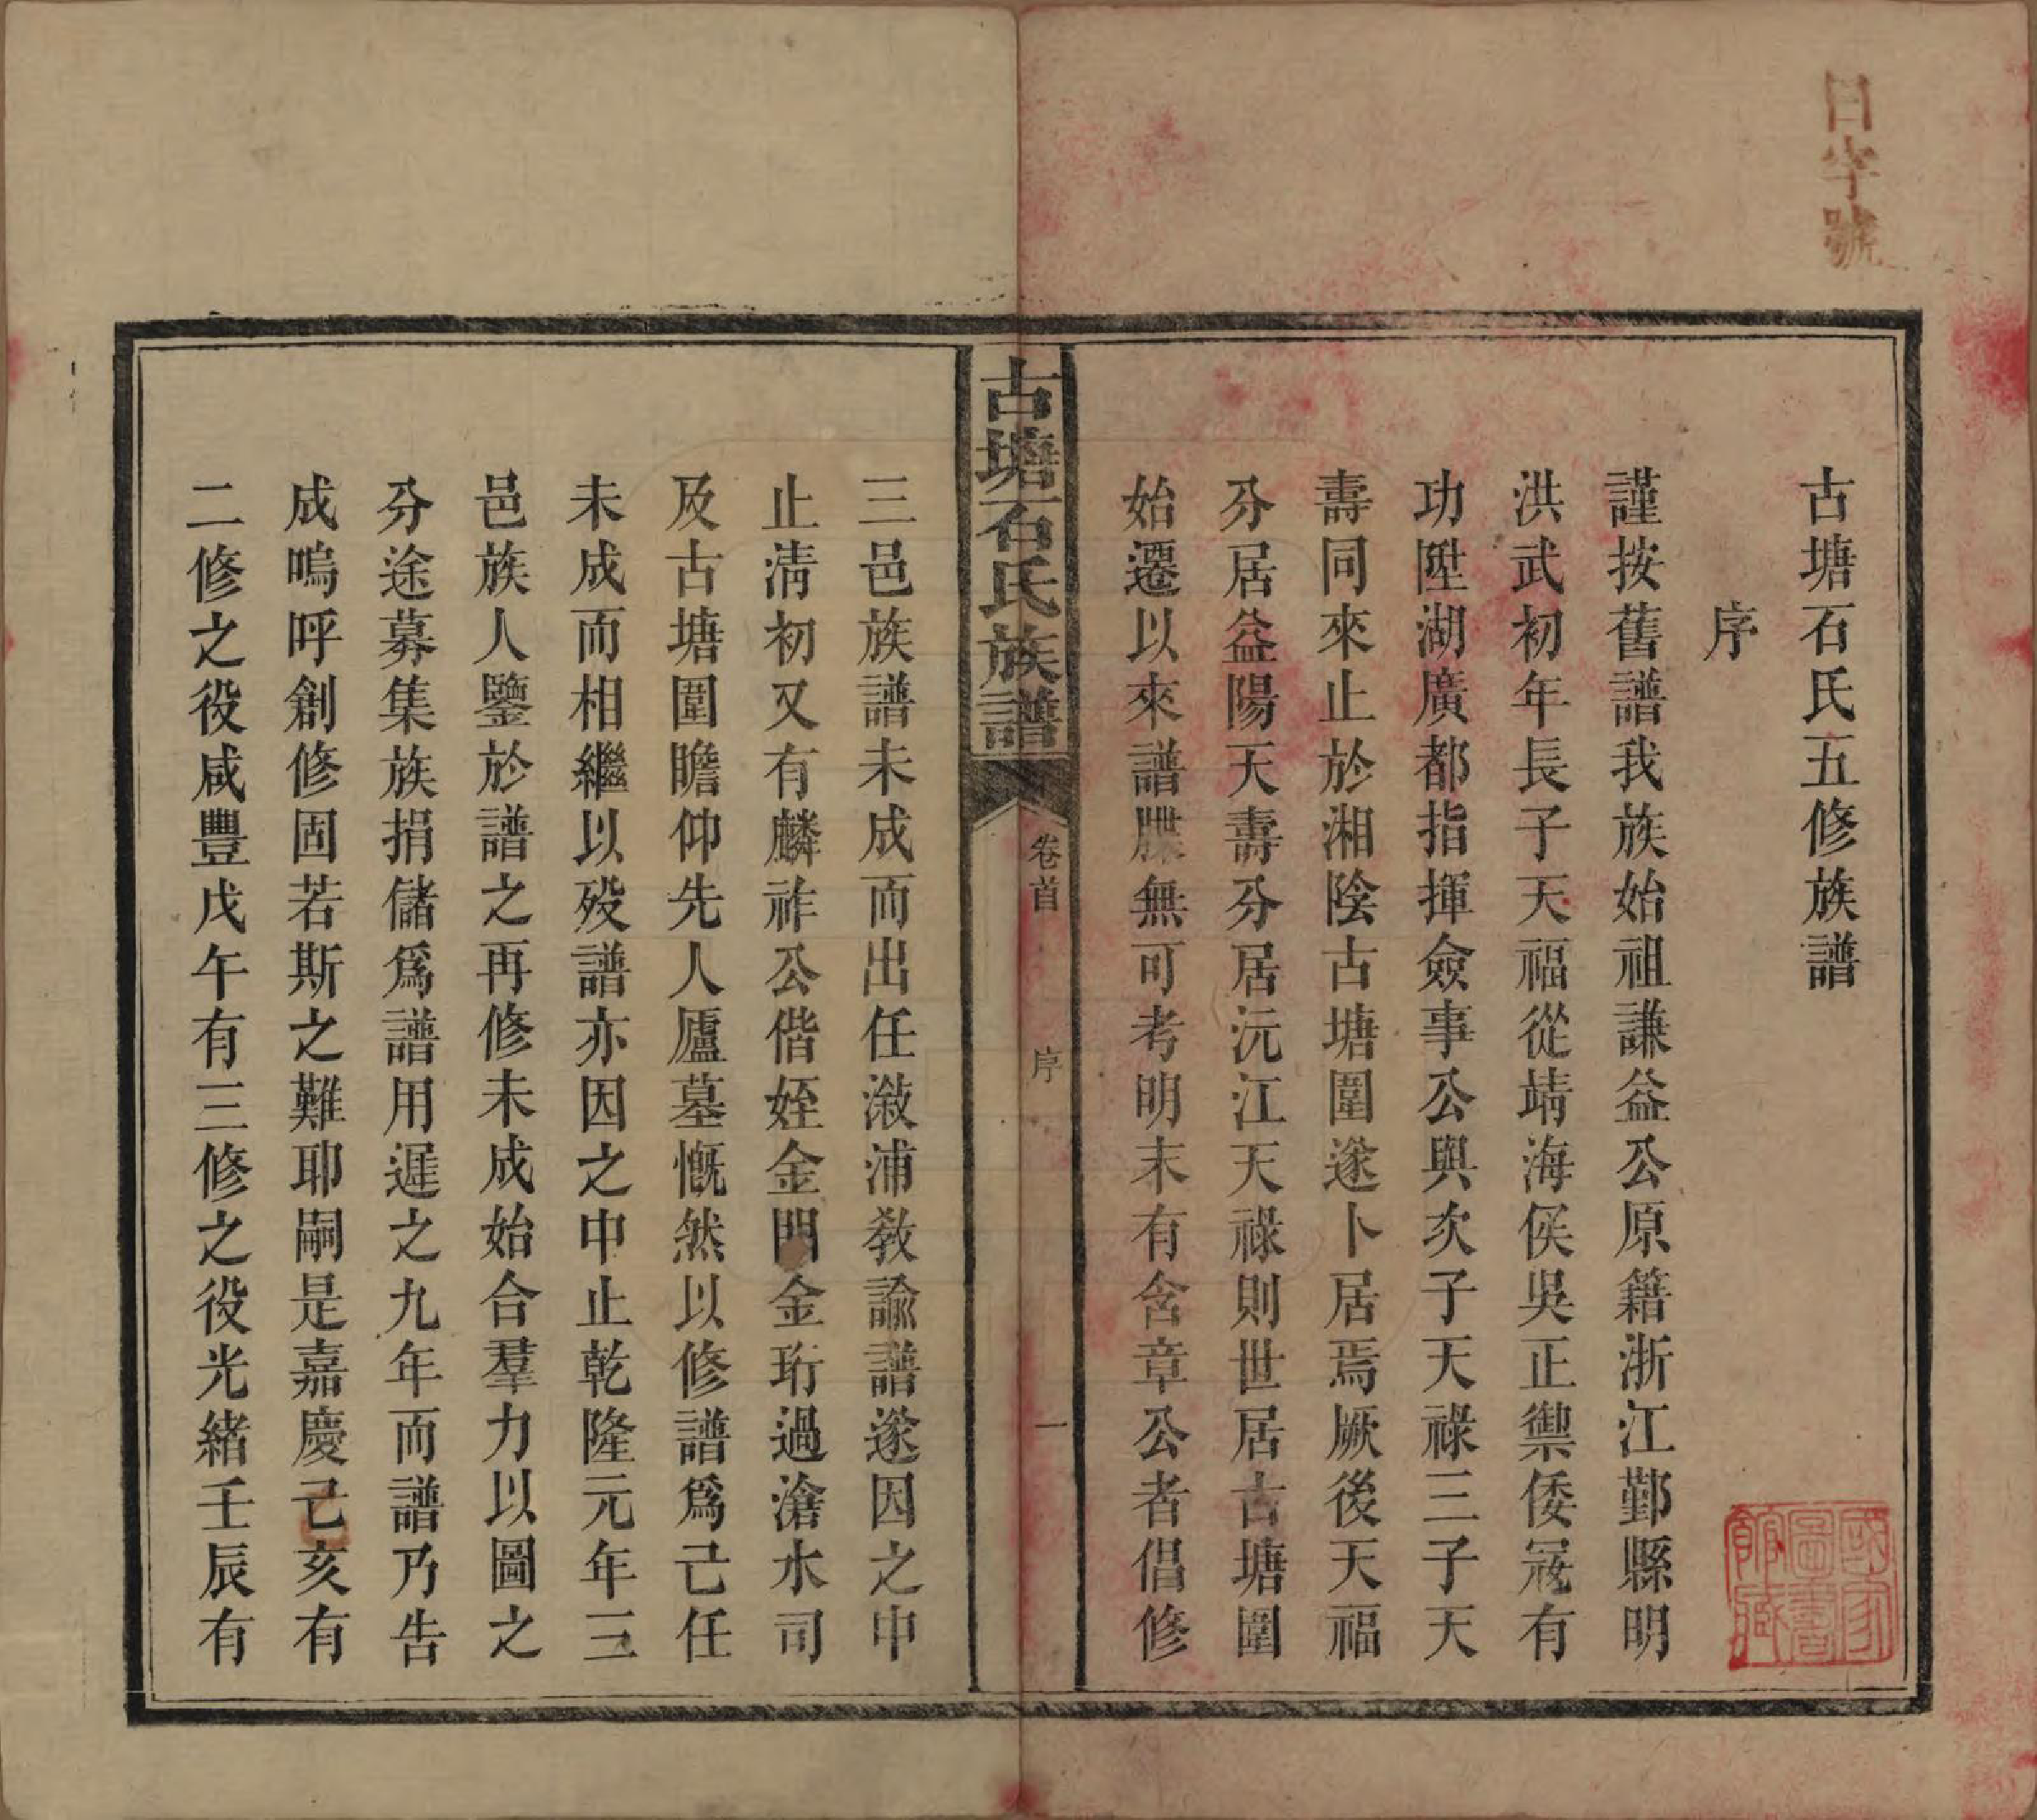 日字號
古塘石氏五修族譜
序
謹按舊譜我族始祖謙益公原籍浙江鄞縣明
洪武初年長子天福從靖海侯吳正禦倭寇有
功陞湖廣都指揮僉事公與次子天祿三子天
壽同來止於湘陰古塘圍遂卜居焉厥後天福
分居益陽天壽分居沅江天祿則世居古塘圍
始遷以來譜牒無可考明末有含章公者倡修
古塘石氏族譜
卷首
序
一
三邑族譜未成而出任漵浦教諭譜遂因之中
止清初又有麟祚公偕姪金門金珩過滄水司
及古塘圍瞻仰先人廬墓慨然以修譜爲己任
未成而相繼以歿譜亦因之中止乾隆元年三
邑族人鑒於譜之再修未成始合羣力以圖之
分途募集族捐儲爲譜用遲之九年而譜乃告
成嗚呼創修固若斯之難耶嗣是嘉慶己亥有
二修之役咸豐戊午有三修之役光緒壬辰有
國家圖書館藏